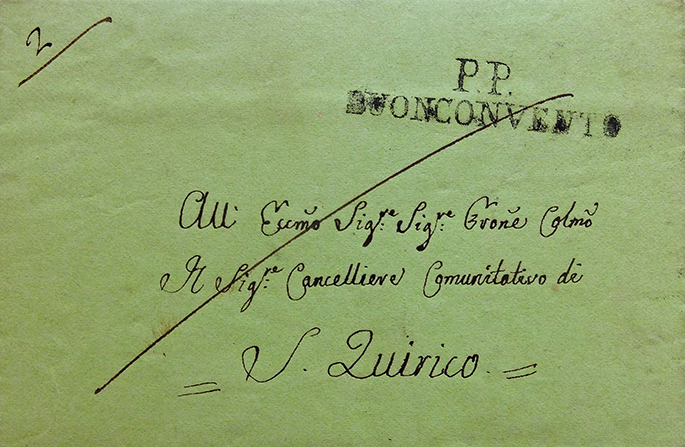 2
P.P.
BUONCONVENTO
All' Eccmõ Sigre Sigre Prone Colmõ
Il Sigre Cancelliere Comunitativo di
S. Quirico